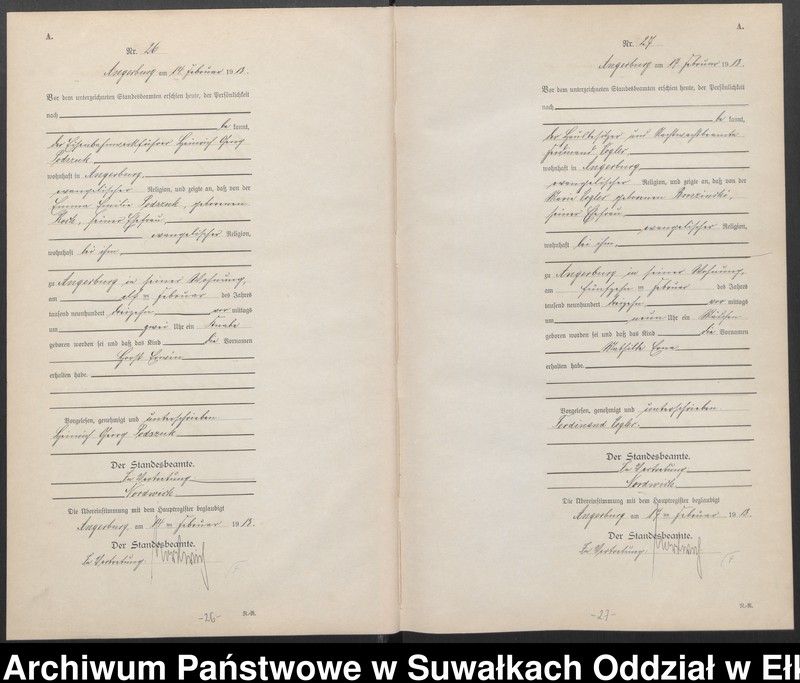 A.
Nr. 26
Angerburg am 14. Februar 1913.
Vor dem unterzeichneten Standesbeamten erschien heute, der Persönlichkeit
nach
be kannt,
der Eisenbahnwerkführer Heinrich Georg
wohnhaft in Angerburg,
evangelischer Religion, und zeigte an, daß von der
Emma Emilie geborenen
seiner Ehefrau,
evangelischer Religion,
wohnhaft bei ihm,
zu Angerburg in seiner Wohnung,
am elf ten Februar des Jahres
tausend neunhundert dreizehn vor mittags
um zwei Uhr ein Knabe
geboren worden sei und daß das Kind die Vornamen
Horst Erwin
erhalten habe.
Vorgelesen, genehmigt und unterschrieben
Heinrich Georg
Der Standesbeamte.
In Vertretung
Nordwich
Die Übereinstimmung mit dem Hauptregister beglaubigt
Angerburg, am 14 ten Februar 1913.
Der Standesbeamte.
In Vertretung
-26-
R.-R.
A.
Nr. 27
Angerburg am 17. Februar 1913.
Vor dem unterzeichneten Standesbeamten erschien heute, der Persönlichkeit
nach
be kannt,
der und
Ferdinand
wohnhaft in Angerburg
evangelischer Religion, und zeigte an, daß von der
Marie geborenen
seiner Ehefrau
evangelischer Religion,
wohnhaft bei ihm,
zu Angerburg in seiner Wohnung,
am fünfzehn ten Februar des Jahres
tausend neunhundert dreizehn vor mittags
um neun Uhr ein Mädchen
geboren worden sei und daß das Kind die Vornamen
Mathilde Erna
erhalten habe.
Vorgelesen, genehmigt und unterschrieben
Ferdinand
Der Standesbeamte.
In Vertretung
Nordwich
Die Übereinstimmung mit dem Hauptregister beglaubigt
Angerburg, am 17 ten Februar 1913.
Der Standesbeamte.
In Vertretung
-27-
R.-R.
Archiwum Państwowe w Suwałkach Oddział w Ełk